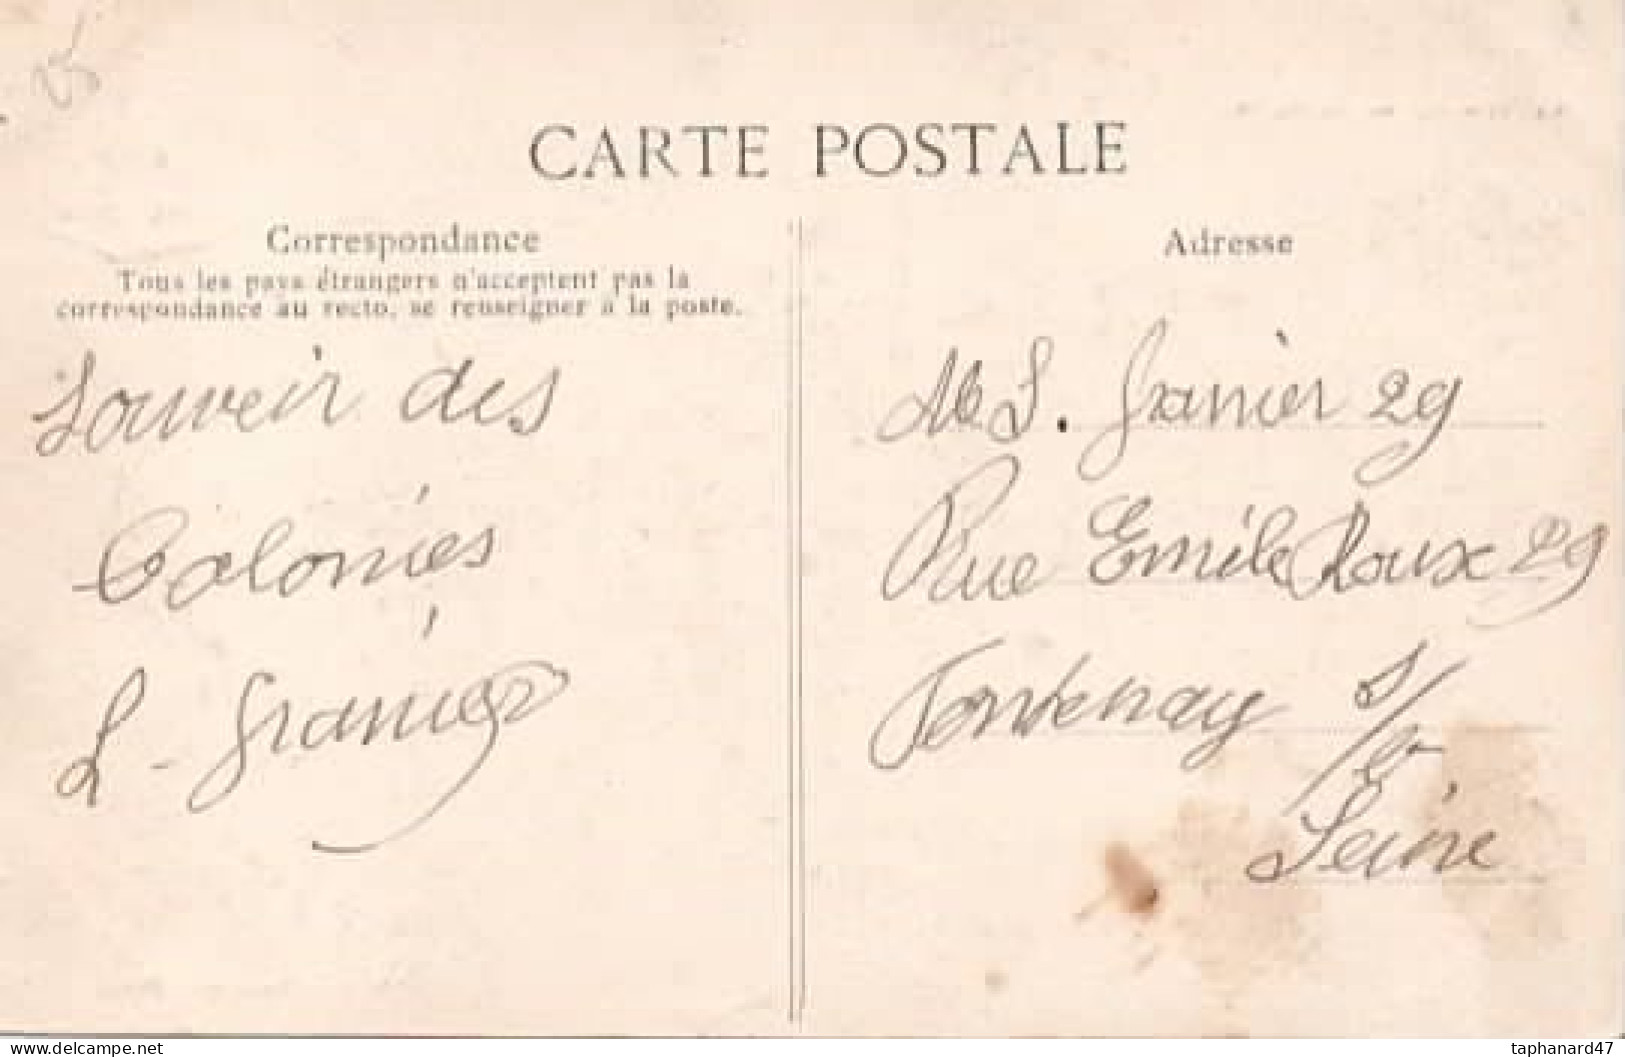 CARTE POSTALE
Correspondance
Tous les pays étrangers n'acceptent pas la
correspondance au recto, se renseigner à la poste.
Souveir des
Colonies
L - Granier
Adresse
L. Granier 29
Rue Emile Roux 29
Fontenay s/
Seine
www.delcampe.net
taphanard47